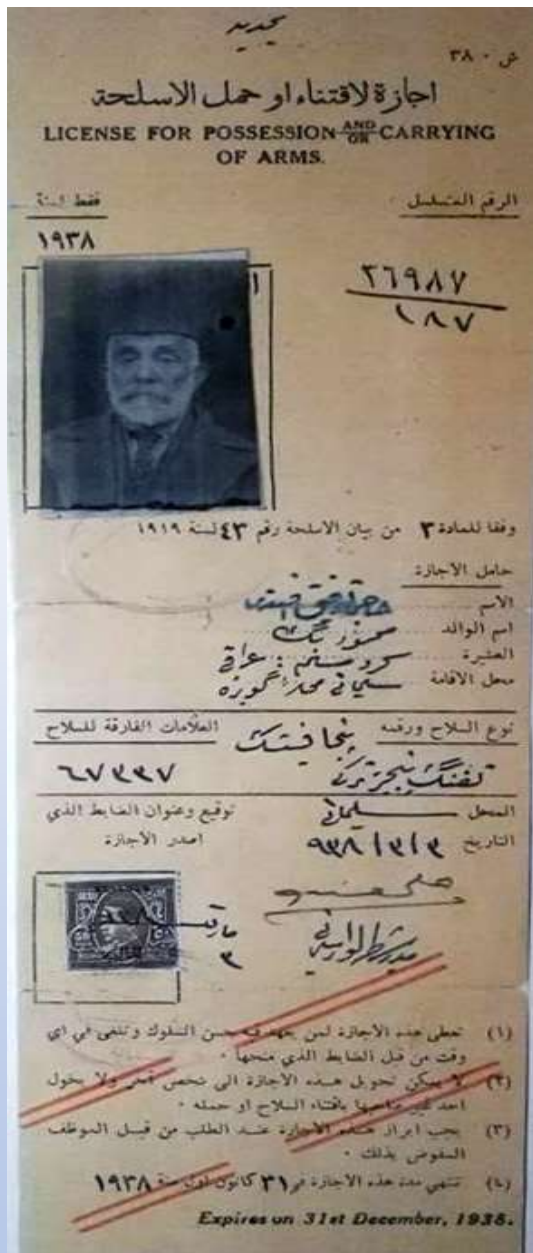 تجديد
ش ٣٨٠
اجازة لاقتناء او حمل الاسلحة
LICENSE FOR POSSESSION AND/OR CARRYING
OF ARMS.
الرقم المتسلسل
فقط لسنة
١٩٣٨
٢٦٩٨٧
١٨٧
وفقا للمادة ٣ من بيان الاسلحة رقم ٤٣ لسنة ١٩١٩
حامل الاجازة
الاسم
اسم الوالد محمود بگ
العشيرة كرد مسلم عراقي
محل الاقامة
نوع السلاح ورقمه
العلامات الفارقة للسلاح
تفنگ
٦٧٣٣٧
المحل
توقيع وعنوان الضابط الذي
التاريخ ٩٣٨/٣/٣
اصدر الاجازة
٣
(١) تعطى هذه الاجازة لمن يعهد فيه حسن السلوك وتلغى في اي
وقت من قبل الضابط الذي منحها ٠
(٢) لا يمكن تحويل هذه الاجازة الى شخص آخر ولا يخول
احد غير صاحبها باقتناء السلاح او حمله ٠
(٣) يجب ابراز هذه الاجازة عند الطلب من قبل الموظف
المفوض بذلك ٠
(٤) تنتهي مدة هذه الاجازة في ٣١ كانون اول سنة ١٩٣٨
Expires on 31st December, 1938.